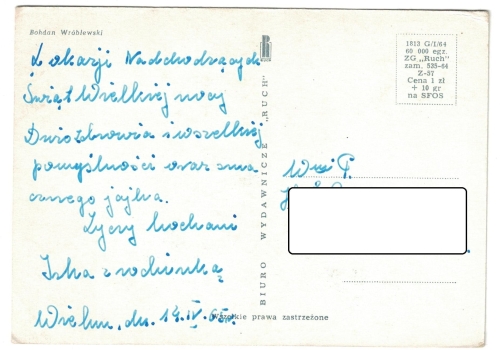 Bohdan Wróblewski
Z okazji Nadchodzących
Świąt Wielkiej nocy
Dużo zdrowia i wszelkiej
pomyślności oraz sma
cznego jajka.
Życzy kochani
Irka z rodzinką
Wieluń, dn. 14.IV.65r.
BIURO WYDAWNICZE „RUCH"
1813 G/I/64
60 000 egz.
ZG „Ruch"
zam. 525-64
Z-57
Cena 1 zł
+ 10 gr
na SFOS
W. P.
Wszelkie prawa zastrzeżone